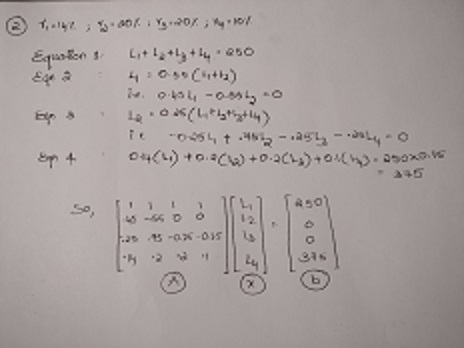 ② r₁=14% ; r₂=20% ; r₃=20% ; r₄=10%
Equation 1: L₁+L₂+L₃+L₄ = 250
Eqn 2 : L₁ = 0.55(L₁+L₂)
i.e. 0.45L₁ - 0.55L₂ = 0
Eqn 3 : L₂ = 0.25(L₁+L₂+L₃+L₄)
i.e. -0.25L₁ + .75L₂ - .25L₃ - .25L₄ = 0
Eqn 4 : 0.14(L₁) + 0.2(L₂) + 0.2(L₃) + 0.1(L₄) = 250×0.15
= 375
So, [1 1 1 1] [L₁] = [250]
[.45 -.55 0 0] [L₂] [0]
[-.25 .75 -0.25 -0.25] [L₃] [0]
[.14 .2 .2 .1] [L₄] [375]
Ⓐ ⓧ ⓑ